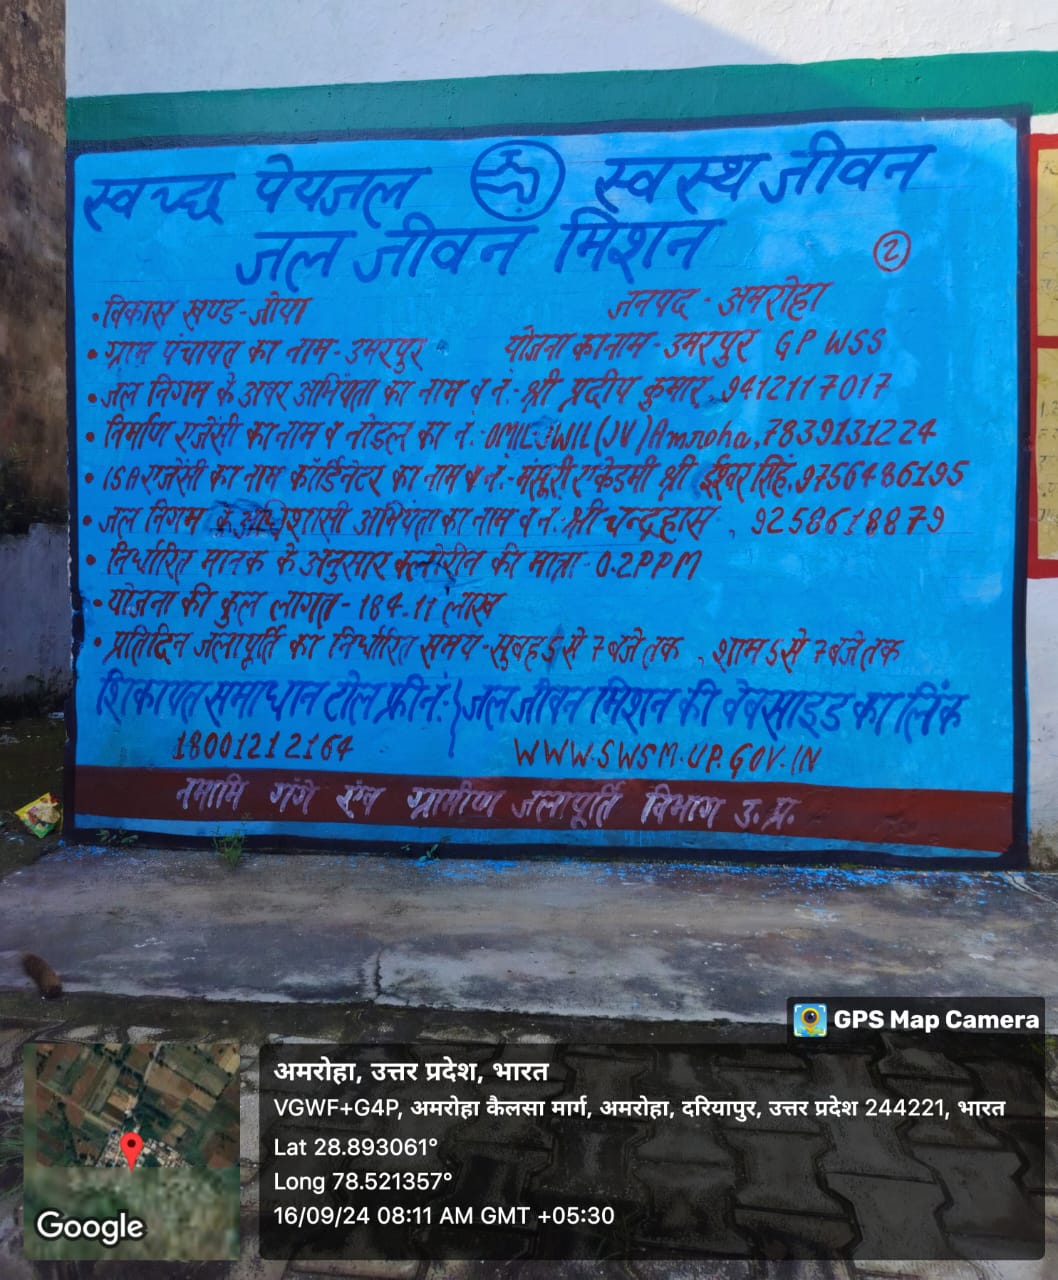 स्वच्छ पेयजल स्वस्थ जीवन
जल जीवन मिशन
2
• विकास खण्ड-जोया जनपद - अमरोहा
• ग्राम पंचायत का नाम- उमरपुर योजना का नाम- उमरपुर GP WSS
• जल निगम के अवर अभियंता का नाम व नं:- श्री प्रदीप कुमार, 9412117017
• निर्माण एजेंसी का नाम व नोडल का नं:- OMIL-JWIL(JV) Amroha, 7839131224
• ISA एजेंसी का नाम कॉर्डिनेटर का नाम व नं:- मंसूरी एकेडमी श्री ईश्वर सिंह, 9756486195
• जल निगम के अधिशासी अभियंता का नाम व नं:- श्री चन्द्रहास , 9258618879
• निर्धारित मानक के अनुसार क्लोरीन की मात्रा- 0.2PPM
• योजना की कुल लागत- 184.11 लाख
• प्रतिदिन जलापूर्ति का निर्धारित समय-सुबह 5 से 7 बजे तक , शाम 5 से 7 बजे तक
शिकायत समाधान टोल फ्री नं:- जल जीवन मिशन की वेबसाइड का लिंक
18001212164 WWW.SWSM.UP.GOV.IN
नमामि गंगे एंव ग्रामीण जलापूर्ति विभाग उ.प्र.
GPS Map Camera
अमरोहा, उत्तर प्रदेश, भारत
VGWF+G4P, अमरोहा कैलसा मार्ग, अमरोहा, दरियापुर, उत्तर प्रदेश 244221, भारत
Lat 28.893061°
Long 78.521357°
16/09/24 08:11 AM GMT +05:30
Google